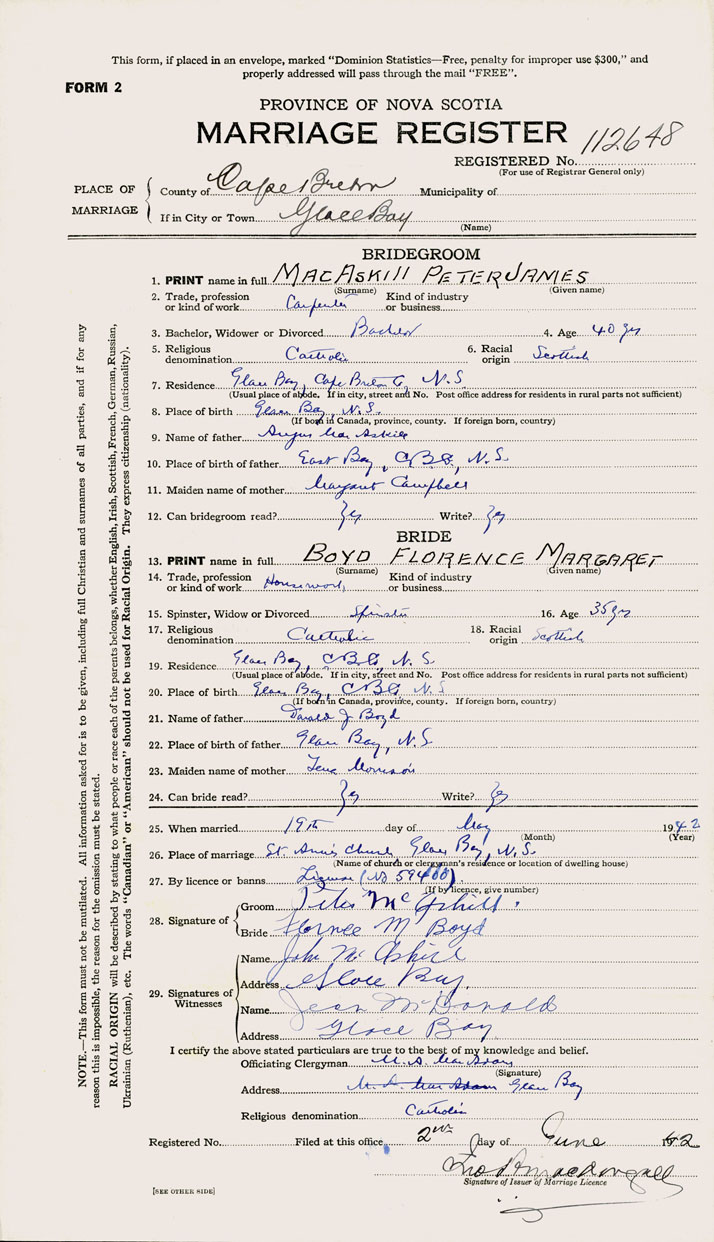 This form, if placed in an envelope, marked "Dominion Statistics—Free, penalty for improper use $300," and
properly addressed will pass through the mail "FREE".
FORM 2
PROVINCE OF NOVA SCOTIA
MARRIAGE REGISTER
REGISTERED No. 112648
(For use of Registrar General only)
PLACE OF MARRIAGE
County of Cape Breton Municipality of
If in City or Town Glace Bay
(Name)
BRIDEGROOM
1. PRINT name in full MACASKILL PETER JAMES
(Surname) (Given name)
2. Trade, profession or kind of work Carpenter Kind of industry or business
3. Bachelor, Widower or Divorced Bachelor 4. Age 40 yrs
5. Religious denomination Catholic 6. Racial origin Scottish
7. Residence Glace Bay, Cape Breton Co, N.S
(Usual place of abode. If in city, street and No. Post office address for residents in rural parts not sufficient)
8. Place of birth Glace Bay, N.S.
(If born in Canada, province, county. If foreign born, country)
9. Name of father Angus MacAskill
10. Place of birth of father East Bay, C.B.Co, N.S.
11. Maiden name of mother Margaret Campbell
12. Can bridegroom read? Yes Write? Yes
BRIDE
13. PRINT name in full BOYD FLORENCE MARGARET
(Surname) (Given name)
14. Trade, profession or kind of work Housework Kind of industry or business
15. Spinster, Widow or Divorced Spinster 16. Age 35 yrs
17. Religious denomination Catholic 18. Racial origin Scottish
19. Residence Glace Bay, C.B.Co, N.S
(Usual place of abode. If in city, street and No. Post office address for residents in rural parts not sufficient)
20. Place of birth Glace Bay, C.B.Co N.S
(If born in Canada, province, county. If foreign born, country)
21. Name of father Donald J Boyd
22. Place of birth of father Glace Bay, N.S
23. Maiden name of mother Morrison
24. Can bride read? Yes Write? Yes
25. When married 19th day of May 1942
(Month) (Year)
26. Place of marriage St. Anns Church, Glace Bay, N.S.
(Name of church or clergyman's residence or location of dwelling house)
27. By licence or banns License (No 59400)
(If by licence, give number)
28. Signature of
Groom Peter McAskill
Bride Florence M Boyd
29. Signatures of Witnesses
Name John McAskill
Address Glace Bay.
Name Jean McDonald
Address Glace Bay.
I certify the above stated particulars are true to the best of my knowledge and belief.
Officiating Clergyman M. A. MacAdam
(Signature)
Address Glace Bay
Religious denomination Catholic
Registered No. Filed at this office 2nd day of June 1942
Signature of Issuer of Marriage Licence
[SEE OTHER SIDE]
NOTE.—This form must not be mutilated. All information asked for is to be given, including full Christian and surnames of all parties, and if for any
reason this is impossible, the reason for the omission must be stated.
RACIAL ORIGIN will be described by stating to what people or race each of the parents belongs, whether English, Irish, Scottish, French, German, Russian,
Ukrainian (Ruthenian), etc. The words "Canadian" or "American" should not be used for Racial Origin. They express citizenship (nationality).